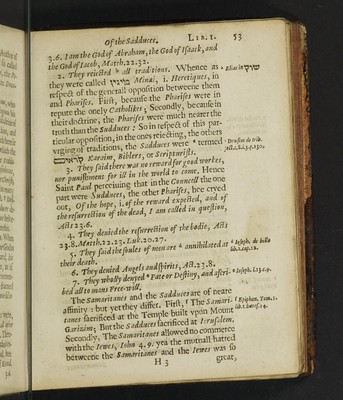 Of the Sadduces. LIB. I. 53
3.6. I am the God of Abraham, the God of Isaack, and
the God of Iacob, Match.22.32.
2. They reiected all traditions. Whence as
they were called מינין Minai, i. Heretiques, in
respect of the generall opposition betweene them
and Pharises. First, because the Pharises were in
repute the onely Catholikes; Secondly, because in
their doctrine, the Pharises were much nearer the
truth than the Sadduces: So in respect of this par-
ticular opposition, in the ones reiecting, the others
vrging of traditions, the Sadduces were termed
קראים Karaim, Biblers, or Scripturists.
3. They said there was no reward for good workes,
nor punishment for ill in the world to come. Hence
Saint Paul perceiuing that in the Councell the one
part were Sadduces, the other Pharises, hee cryed
out, Of the hope, i. of the reward expected, and of
the resurrection of the dead, I am called in question,
Acts 23.6.
4. They denied the resurrection of the bodie, Acts
23.8. Match.22.23. Luk.20.27.
5. They said the soules of men are annihilated at
their death.
6. They denied Angels and spirits, Act.23.8.
7. They wholly denyed Fate or Destiny, and ascri-
bed all to mans Free-will.
The Samaritanes and the Sadduces are of neare
affinity: but yet they differ. First, The Samari-
tanes sacrificed at the Temple built vpon Mount
Garizim; But the Sadduces sacrificed at Ierusalem.
Secondly, The Samaritanes allowed no commerce
with the Iewes, Iohn 4.9. yea the mutuall hatred
betweene the Samaritanes and the Iewes was so
H 3 great,
Elias in
Drusius de trib.
Ioseph. de bello
lib.2.cap.12.
Ioseph. l.13.c.9.
Epiphan. Tom.1.
lib.1.hæres.14.